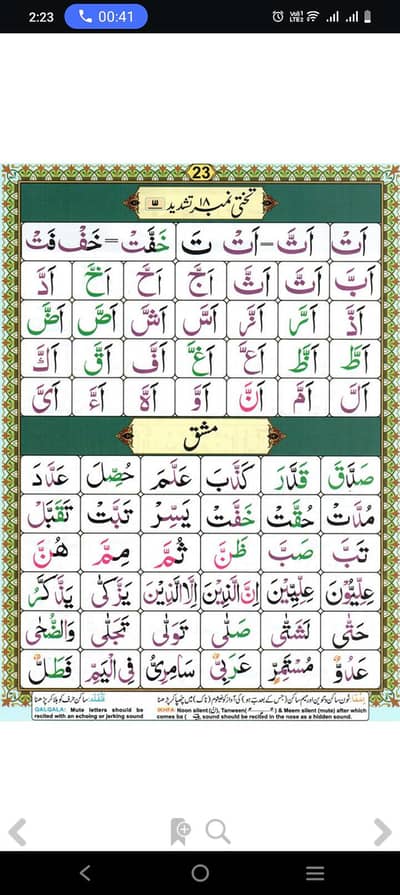 2:23 00:41 Vo)) 1 LTE2
23
تختی نمبر ۱۸ تشدید
اَتْ اَتَّ = اَتْ تَ خَفَّتْ = خَفْ فَتْ
اَبَّ اَتَّ اَثَّ اَجَّ اَحَّ اَخَّ اَدَّ
اَذَّ اَرَّ اَزَّ اَسَّ اَشَّ اَصَّ اَضَّ
اَطَّ اَظَّ اَعَّ اَغَّ اَفَّ اَقَّ اَكَّ
اَلَّ اَمَّ اَنَّ اَوَّ اَهَّ اَءَّ اَیَّ
مشق
صَدَّقَ قَدَّرَ كَذَّبَ عَلَّمَ حُصِّلَ عَدَّدَ
مُدَّتْ حُقَّتْ خَفَّتْ يَسِّرْ تَبَّتْ تَقَبَّلْ
تَبَّ صَبَّ ظَنَّ ثُمَّ مِمَّ هُنَّ
عِلِّيُّوْنَ عِلِّيِّيْنَ اِنَّ الَّذِيْنَ اِلَّا الَّذِيْنَ يَزَّكّٰى يَذَّكَّرُ
حَتّٰى لَشَتّٰى صَلّٰى تَوَلّٰى تَجَلّٰى وَالضُّحٰى
عَدُوٌّ مُسْتَمِرٌّ عَرَبِيٌّ سَامِرِيُّ فِي الْيَمِّ فَطَلٌّ
QALQALA: Mute letters should be recited with an echoing or jerking sound
IKHFA: Noon silent (نْ), Tanween( ) & Meem silent (mute) after which comes ba ( ب ), sound should be recited in the nose as a hidden sound.